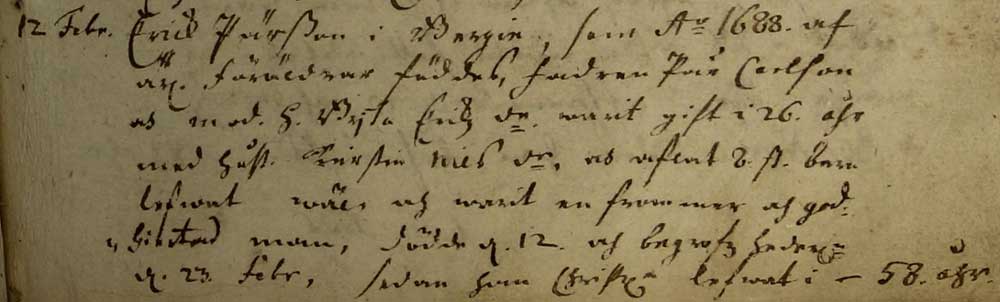 12 Febr. Erich Pärsson i Bergie, som Ao 1688. af
Föräldrar föddes, fadren Pär Carlson
och mod. H. Erichz dr. warit gift i 26. åhr
med Hust. Kirstin Nils dr, och aflat 8. st. barn
lefwat wäl, och warit en frommer och god
man, dödde d. 12. och begrofz
d. 23. Febr, sedan han lefwat i 58. åhr.